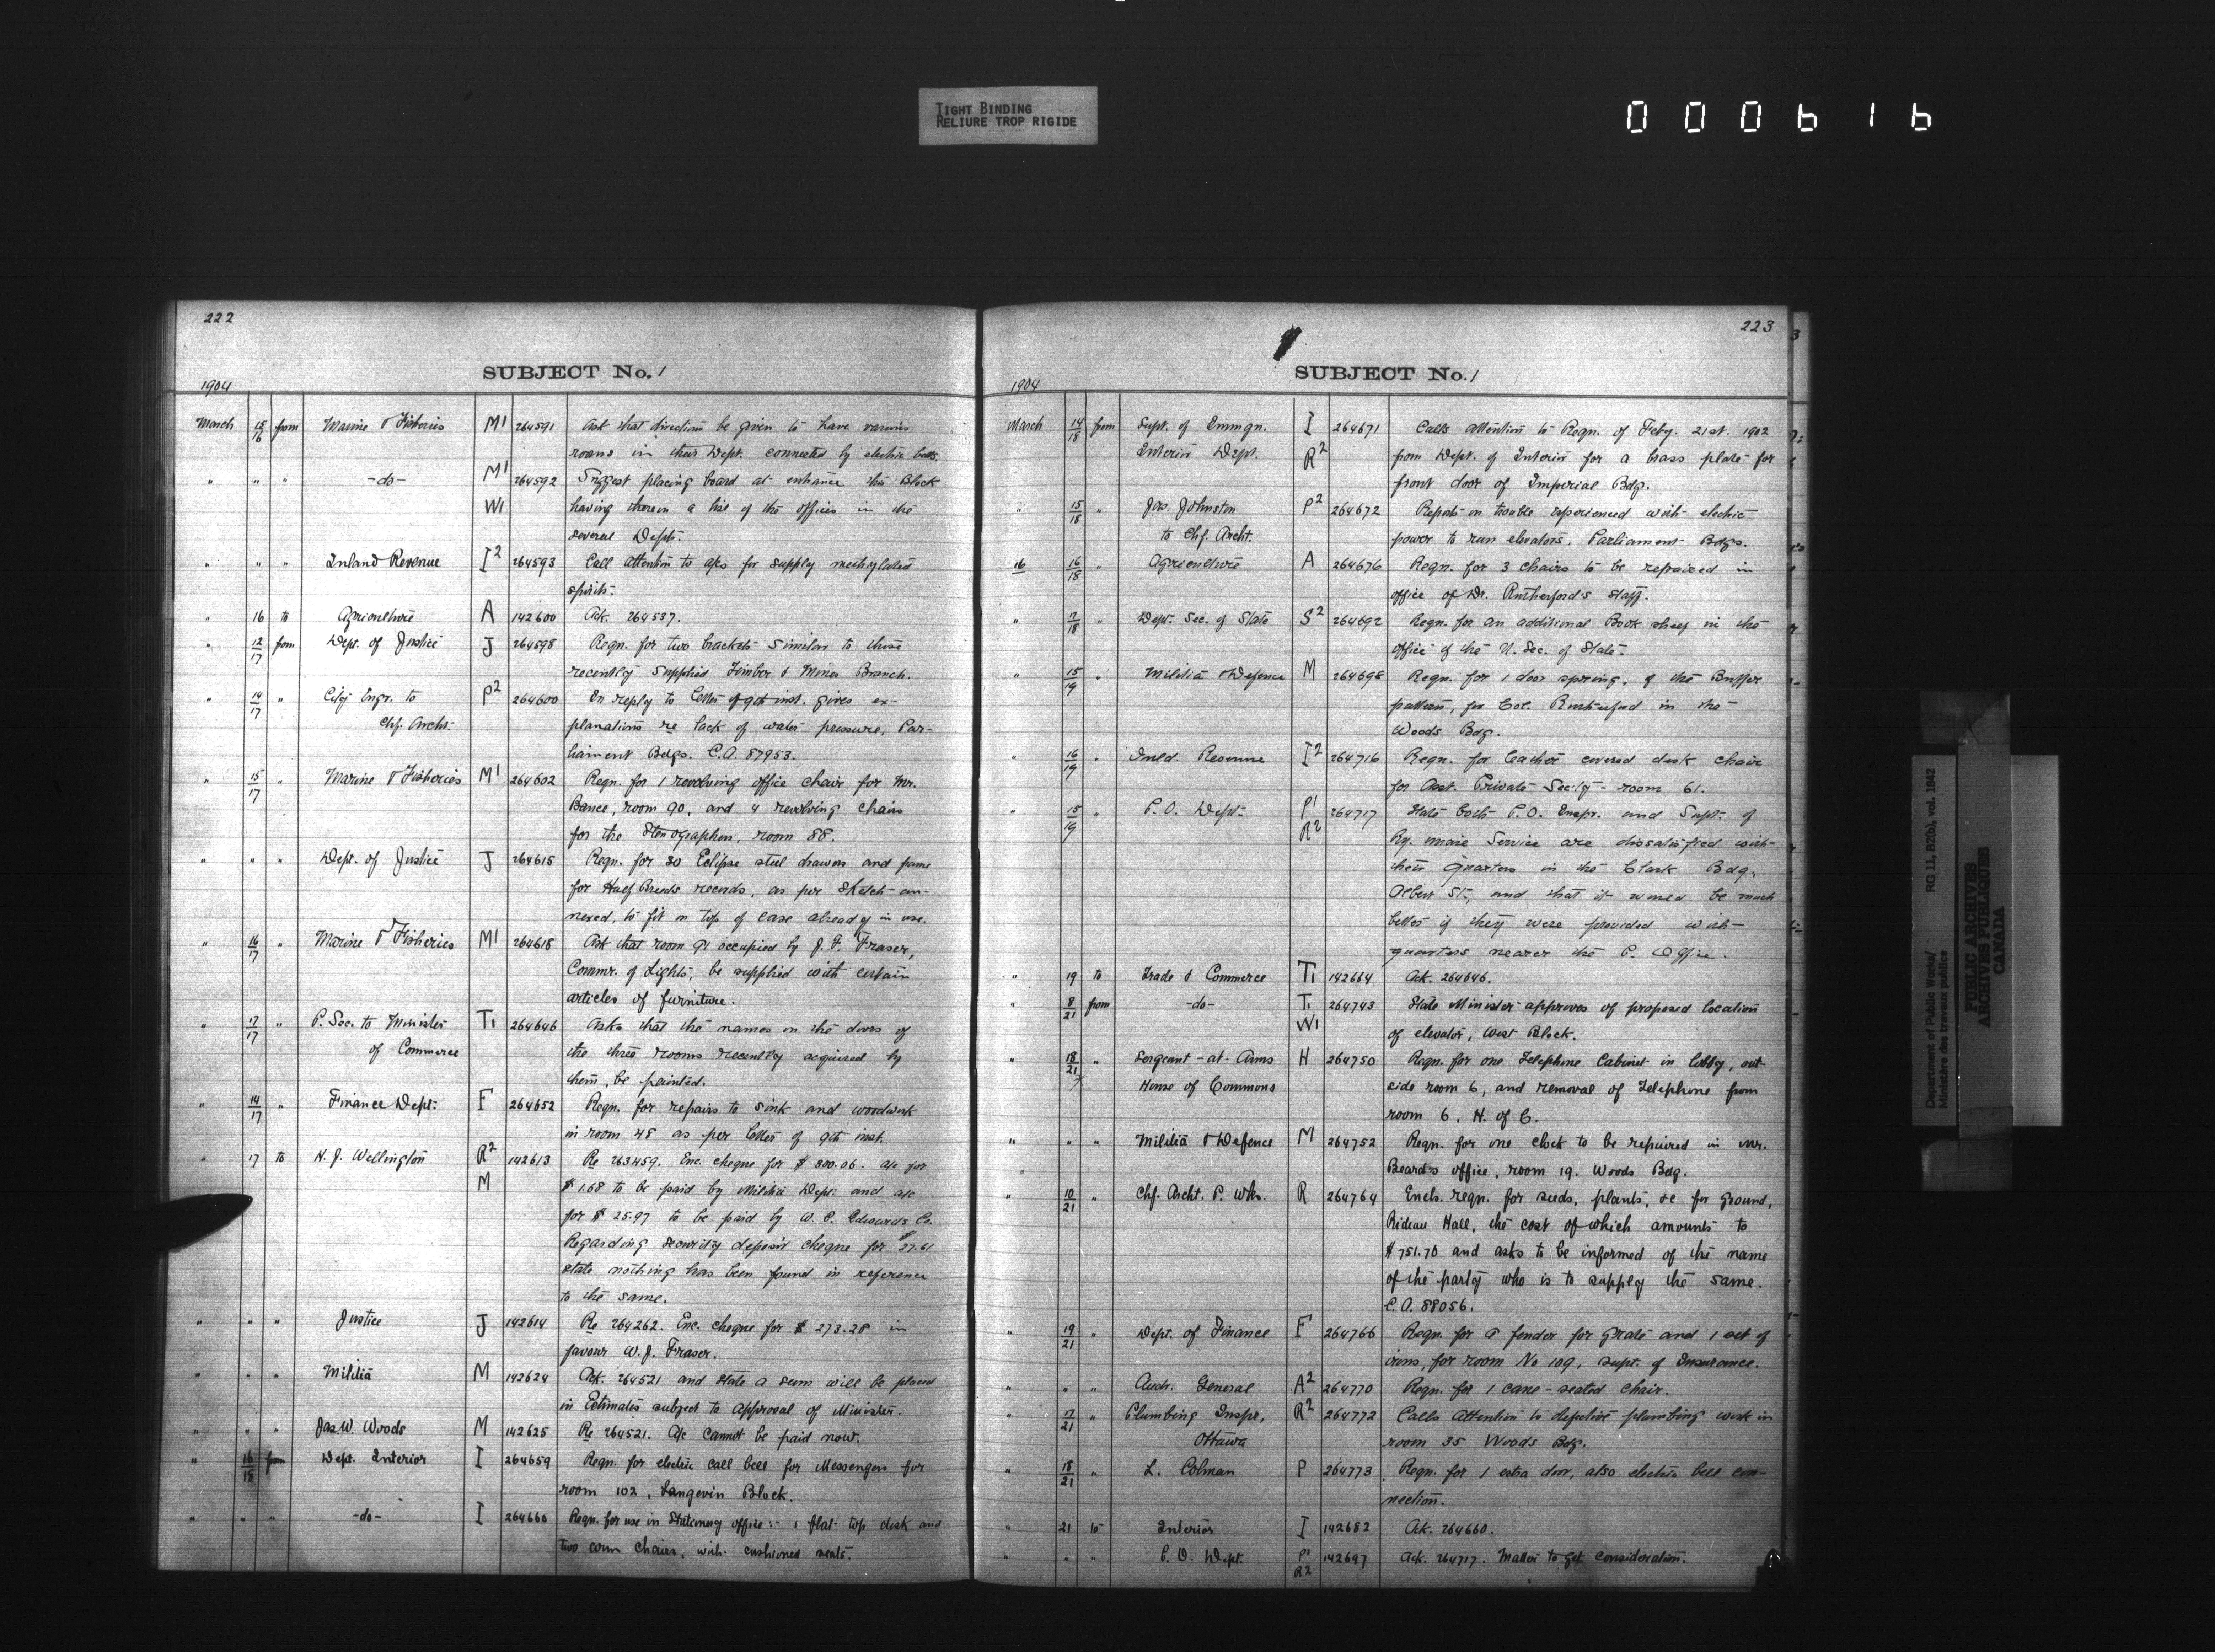 TIGHT BINDING
RELIURE TROP RIGIDE
000616
222
SUBJECT No. 1
1904
March 15/16 from Marine & Fisheries M1 264591 Ask that direction be given to have various
rooms in their Dept. connected by electric bells.
" " " -do- M1 264592 Suggest placing board at entrance this Block
W1 having thereon a list of the offices in the
several Depts.
" " " Inland Revenue I2 264593 Call attention to a/cs for supply methylated
spirits.
" 16 to Agriculture A 142600 Ack. 264537.
" 12/17 from Dept. of Justice J 264598 Reqn. for two brackets similar to those
recently supplied Timber & Mines Branch.
" 14/17 " City Engr. to P2 264600 In reply to letter of 9th inst. gives ex-
Chf. Archt. planations re lack of water pressure, Par-
liament Bdgs. C.A. 87953.
" 15/17 " Marine & Fisheries M1 264602 Reqn. for 1 revolving office chair for Mr.
Bance, room 90, and 4 revolving chairs
for the Stenographers, room 88.
" " " Dept. of Justice J 264615 Reqn. for 30 Eclipse steel drawers and frame
for Half Breeds records, as per sketch an-
nexed, to fit on top of case already in use.
" 16/17 " Marine & Fisheries M1 264618 Ask that room 91 occupied by J. F. Fraser,
Commr. of Lights, be supplied with certain
articles of furniture.
" 17/17 " P. Sec. to Minister T1 264646 Asks that the names on the doors of
of Commerce the three rooms recently acquired by
them, be painted.
" 14/17 " Finance Dept. F 264652 Reqn. for repairs to sink and woodwork
in room 48 as per letter of 9th inst.
" 17 to N. J. Wellington R2 142613 Re 263459. Enc. cheque for $ 800.06. a/c for
M $1.68 to be paid by Militia Dept. and a/c
for $ 25.97 to be paid by W. C. Edwards Co.
Regarding security deposit cheque for $37.61
state nothing has been found in reference
to the same.
" " " Justice J 142614 Re 264262. Enc. cheque for $ 273.28 in
favour W. J. Fraser.
" " " Militia M 142624 Ack. 264521 and state a sum will be placed
in Estimates subject to approval of Minister.
" " " Jas. W. Woods M 142625 Re 264521. A/c cannot be paid now.
" 16/18 from Dept. Interior I 264659 Reqn. for electric call bell for Messengers for
room 102, Langevin Block.
" " " -do- I 264660 Reqn. for use in Stationery office:- 1 flat top desk and
two chairs, with cushioned seats.
223
SUBJECT No. 1
1904
March 14/18 from Supt. of Immgn. I 264671 Calls attention to Reqn. of Feby. 21st. 1902
Interior Dept. R2 from Dept. of Interior for a brass plate for
front door of Imperial Bdg.
" 15/18 " Jas. Johnston P2 264672 Reports on trouble experienced with electric
to Chf. Archt. power to run elevators, Parliament Bdgs.
16 16/18 " Agriculture A 264676 Reqn. for 3 chairs to be repaired in
office of Dr. Rutherford's staff.
" 17/18 " Dept. Sec. of State S2 264692 Reqn. for an additional Book shelf in the
office of the U. Sec. of State.
" 15/19 " Militia & Defence M 264698 Reqn. for 1 door spring, of the Buffer
pattern, for Col. Rutherford in the
Woods Bdg.
" 16/19 " Inld. Revenue I2 264716 Reqn. for leather covered desk chair
for Asst. Private Secty - room 61.
" 15/19 " P. O. Dept. P1 264717 State both P.O. Inspr. and Supt. of
R2 Ry. Mail Service are dissatisfied with
their quarters in the Clark Bdg.
Albert St., and that it would be much
better if they were provided with
quarters nearer the P. Office.
" 19 to Trade & Commerce T1 142664 Ack. 264646.
" 8/21 from -do- T1 264743 State Minister approves of proposed location
W1 of elevator, West Block.
" 18/21 " Sergeant-at-Arms H 264750 Reqn. for one Telephone Cabinet in lobby, out-
House of Commons side room 6, and removal of Telephone from
room 6. H. of C.
" " " Militia & Defence M 264752 Reqn. for one clock to be repaired in Mr.
" Beard's office, room 19. Woods Bdg.
" 10/21 " Chf. Archt. P. Wks. R 264764 Encls. reqn. for seeds, plants, &c for ground,
Rideau Hall, the cost of which amounts to
$751.70 and asks to be informed of the name
of the party who is to supply the same.
C. A. 88056.
" 19/21 " Dept. of Finance F 264766 Reqn. for a fender for grate and 1 set of
irons, for room No 109, supt. of Insurance.
" " " Audr. General A2 264770 Reqn. for 1 cane-seated chair.
" 17/21 " Plumbing Inspr, R2 264772 Calls attention to defective plumbing work in
Ottawa room 35 Woods Bdg.
" 18/21 " L. Colman P 264773 Reqn. for 1 extra door, also electric bell con-
nection.
" 21 to Interior I 142682 Ack. 264660.
" " " P. O. Dept. P1 142697 Ack. 264717. Matter to get consideration.
R2
Department of Public Works/
Ministère des travaux publics
RG 11, B2(b), vol. 1842
PUBLIC ARCHIVES
ARCHIVES PUBLIQUES
CANADA